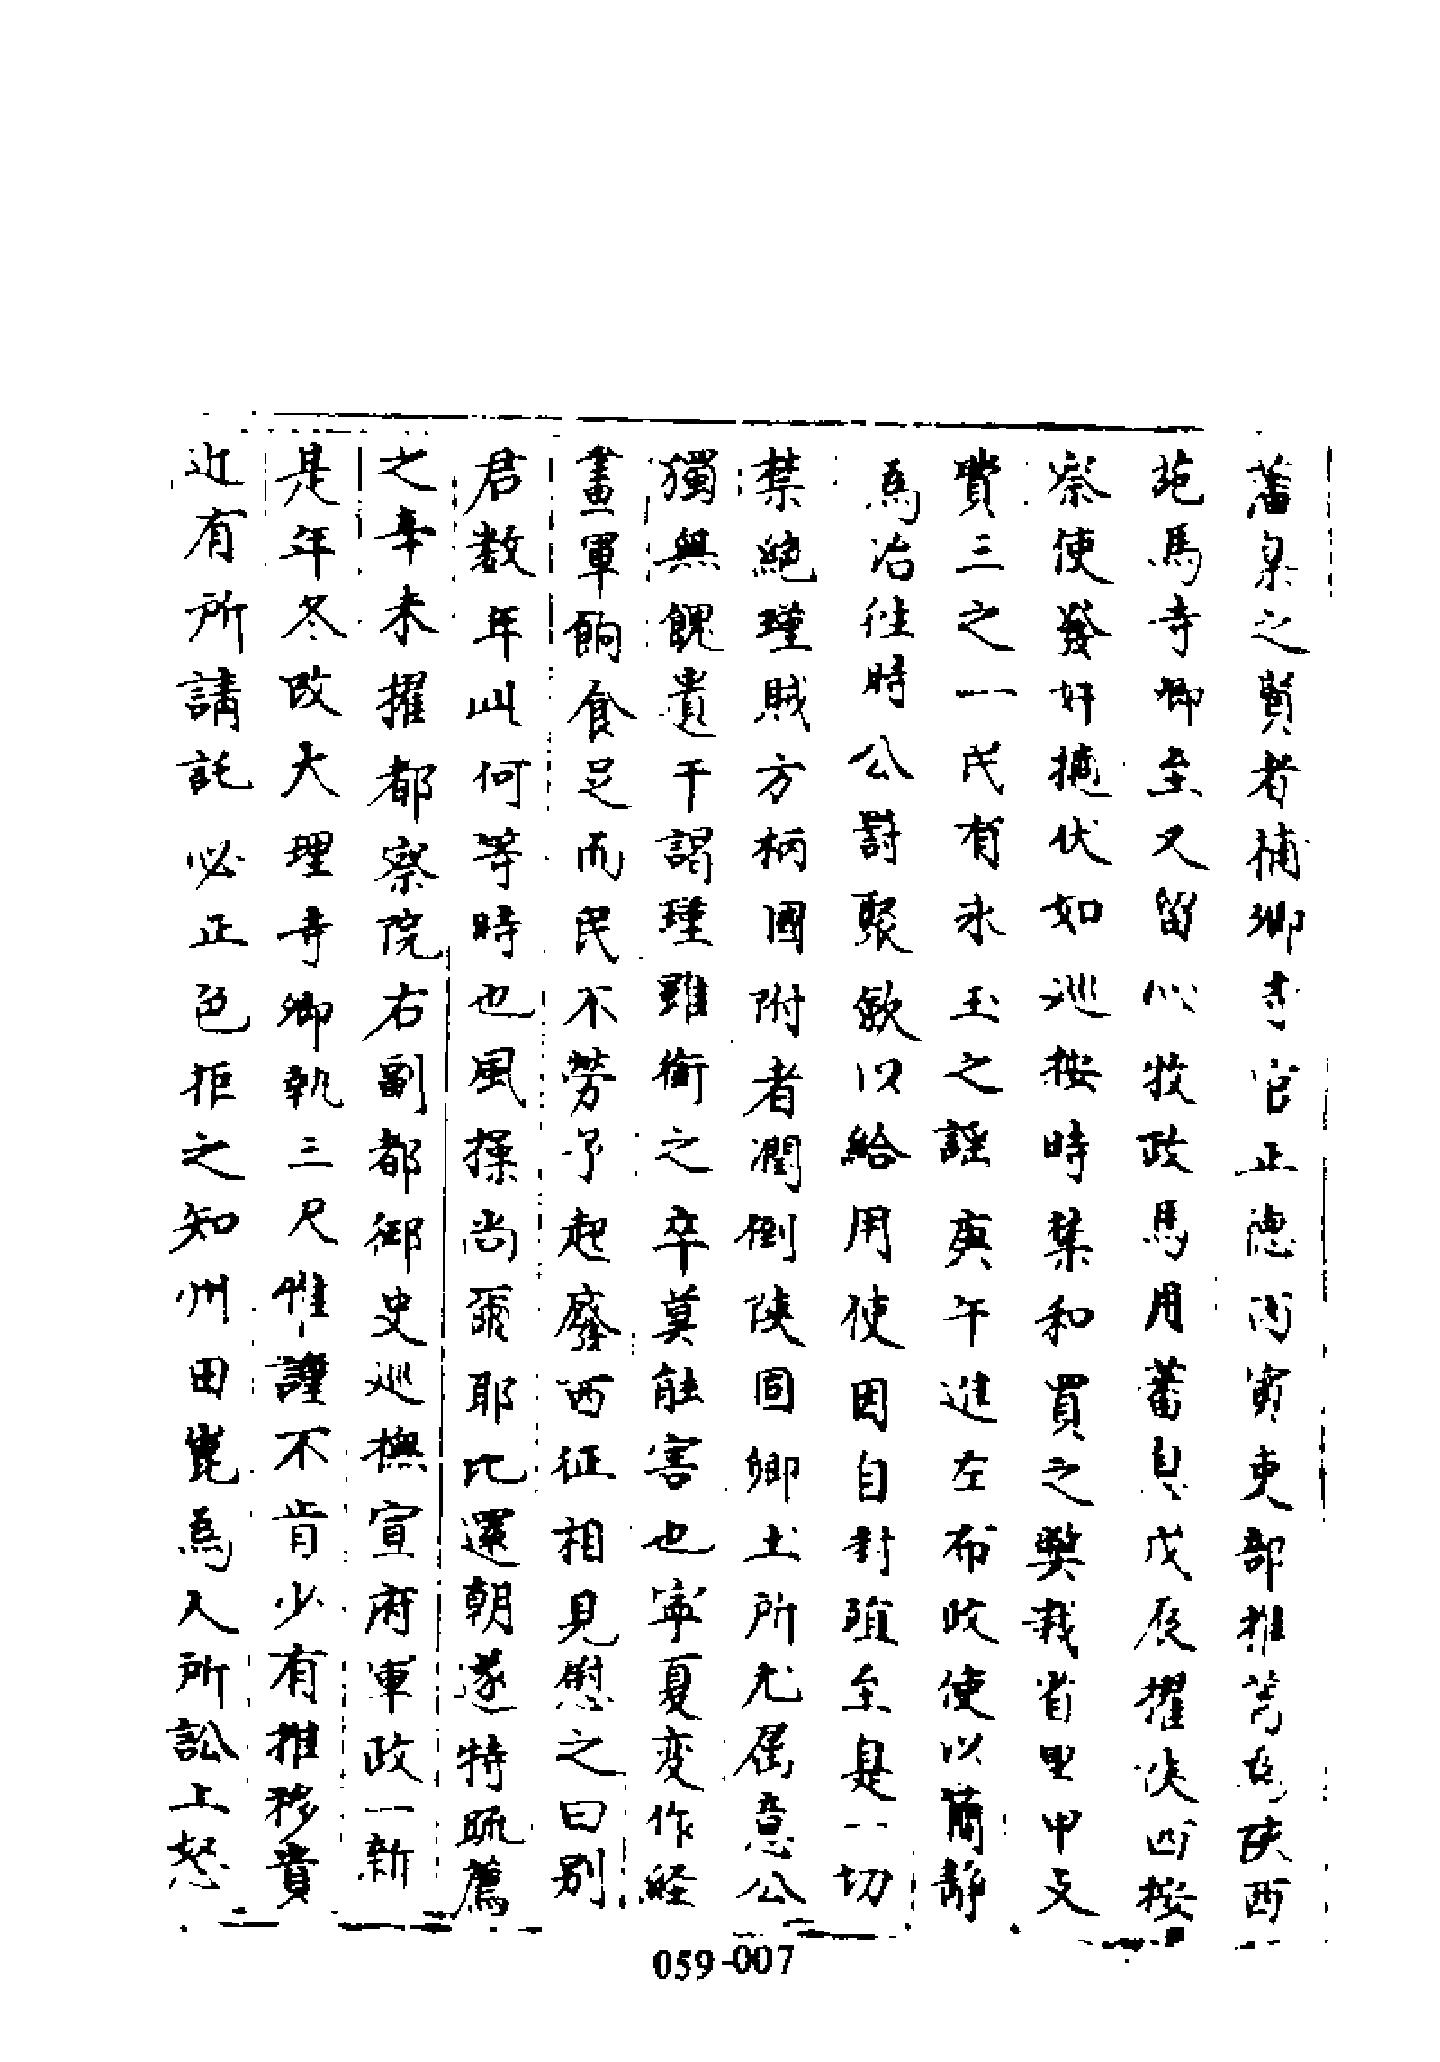 藩臬之賢者補卿寺官正德丙寅吏部推芳為陝西
苑馬寺卿至又留心牧政馬用蕃息戊辰擢陝西按
察使發奸擿伏如巡按時禁和買之獘裁省里甲支
費三之一民有氷玉之謡庚午進左布政使以簡靜
為治往時公罸聚斂以給用使因自封殖至是一切
禁絶瑾賊方柄國附者潤倒陝固鄉土所尤属意公
獨無餽遺干謁瑾雖銜之卒莫能害也寧夏変作経
畫軍餉食足而民不勞予起廢西征相見慰之曰别
君数年此何等時也風操尚爾耶比還朝遂特疏薦
之辛未擢都察院右副都御史巡撫宣府軍政一新
是年冬改大理寺卿執三尺惟謹不肯少有推移貴
近有所請託必正色拒之知州田崑為人所訟上怒
059-007